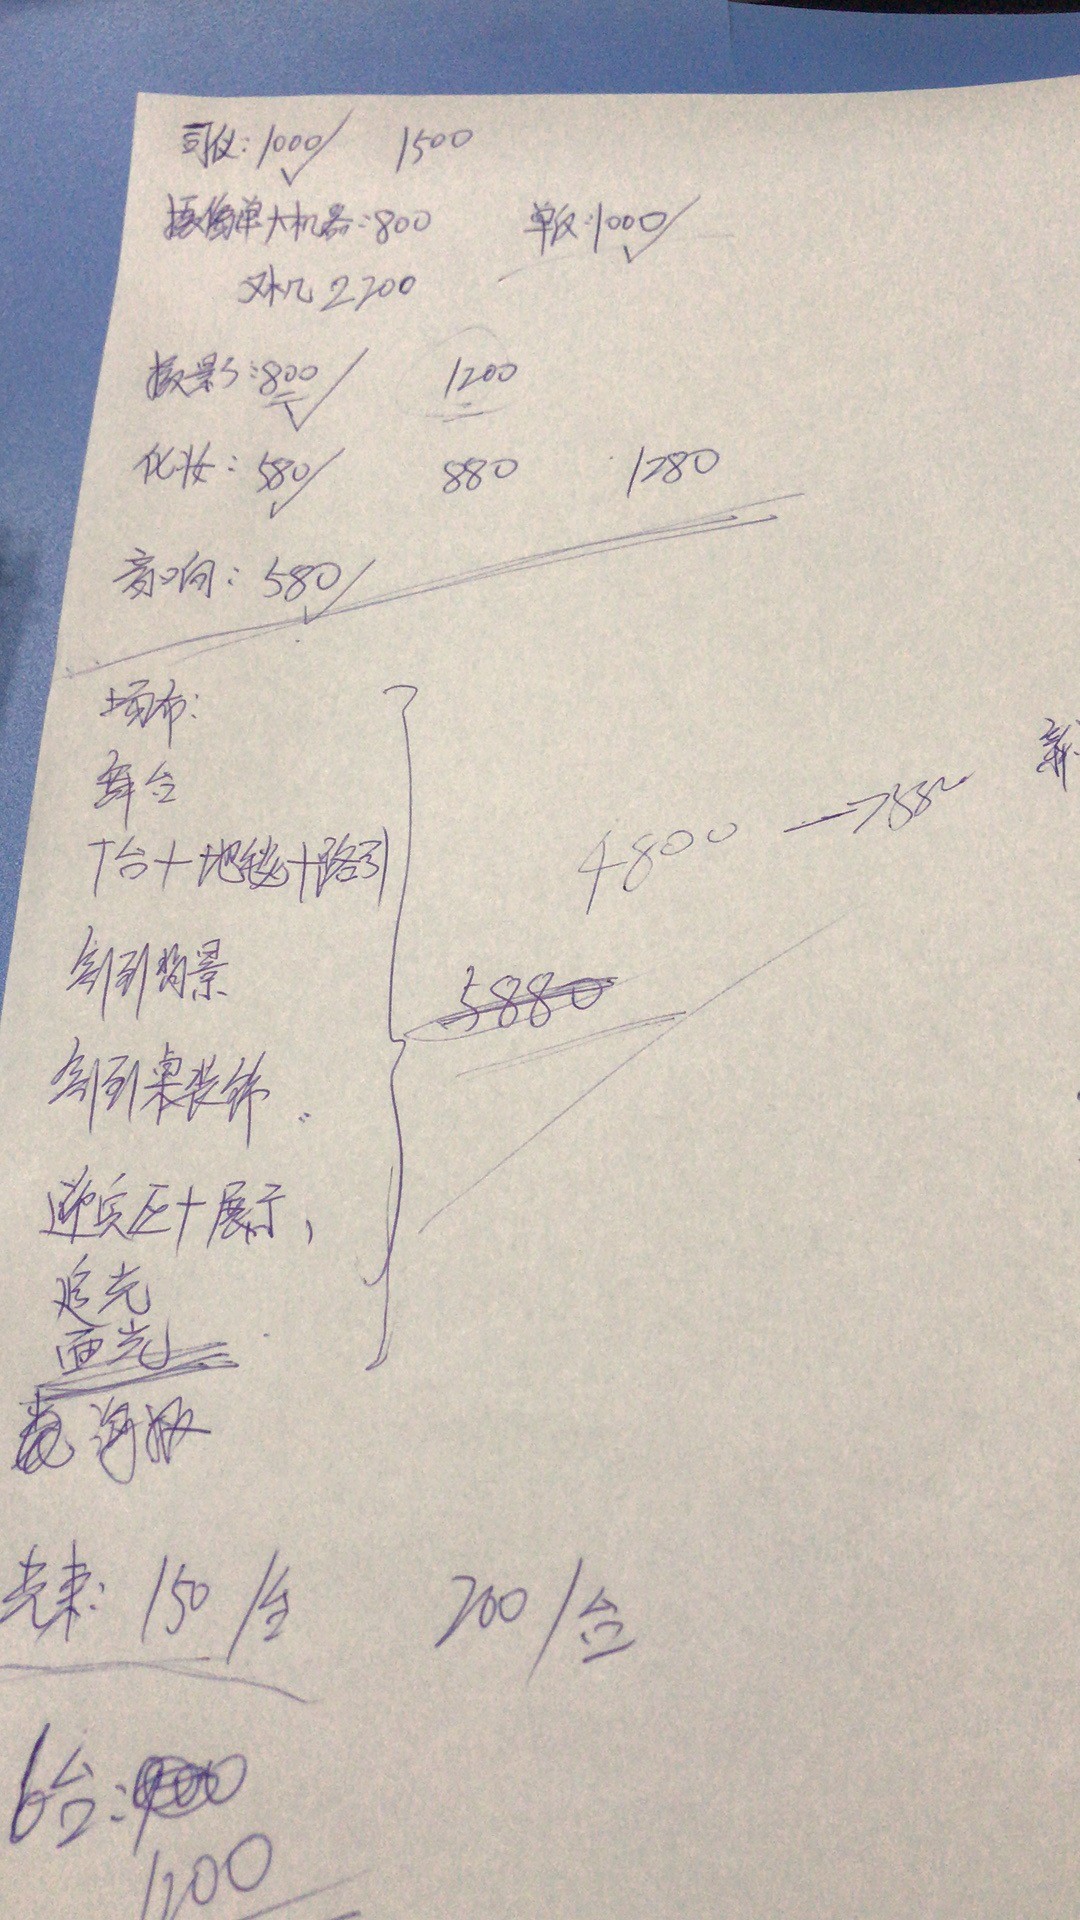 司仪:1000 1500
摄像单大机器:800 单反:1000
双机 2200
摄影:800 1200
化妆:580 880 1280
音响:580
场布:
舞台
T台+地毯+路引
4800 — 7880
签到背景
5880
签到桌装饰
迎宾区+展示,
追光
面光
海报
光束:150/台 200/台
6台:
1200